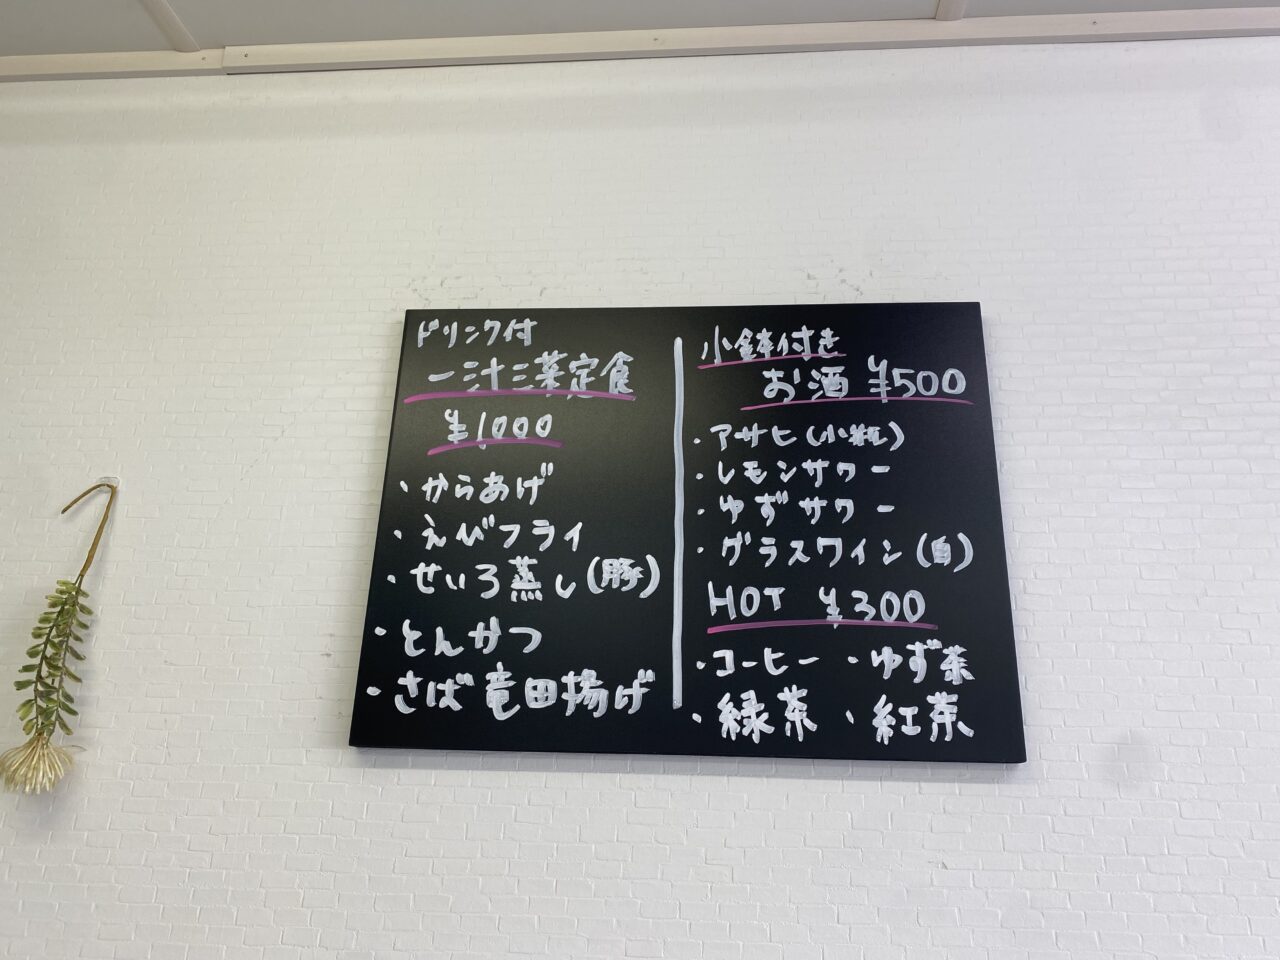 ドリンク付
一汁三菜定食
¥1,000
・からあげ
・えびフライ
・せいろ蒸し(豚)
・とんかつ
・さば竜田揚げ
小鉢付き
お酒 ¥500
・アサヒ(小瓶)
・レモンサワー
・ゆずサワー
・グラスワイン(白)
HOT ¥300
・コーヒー ・ゆず茶
・緑茶 ・紅茶